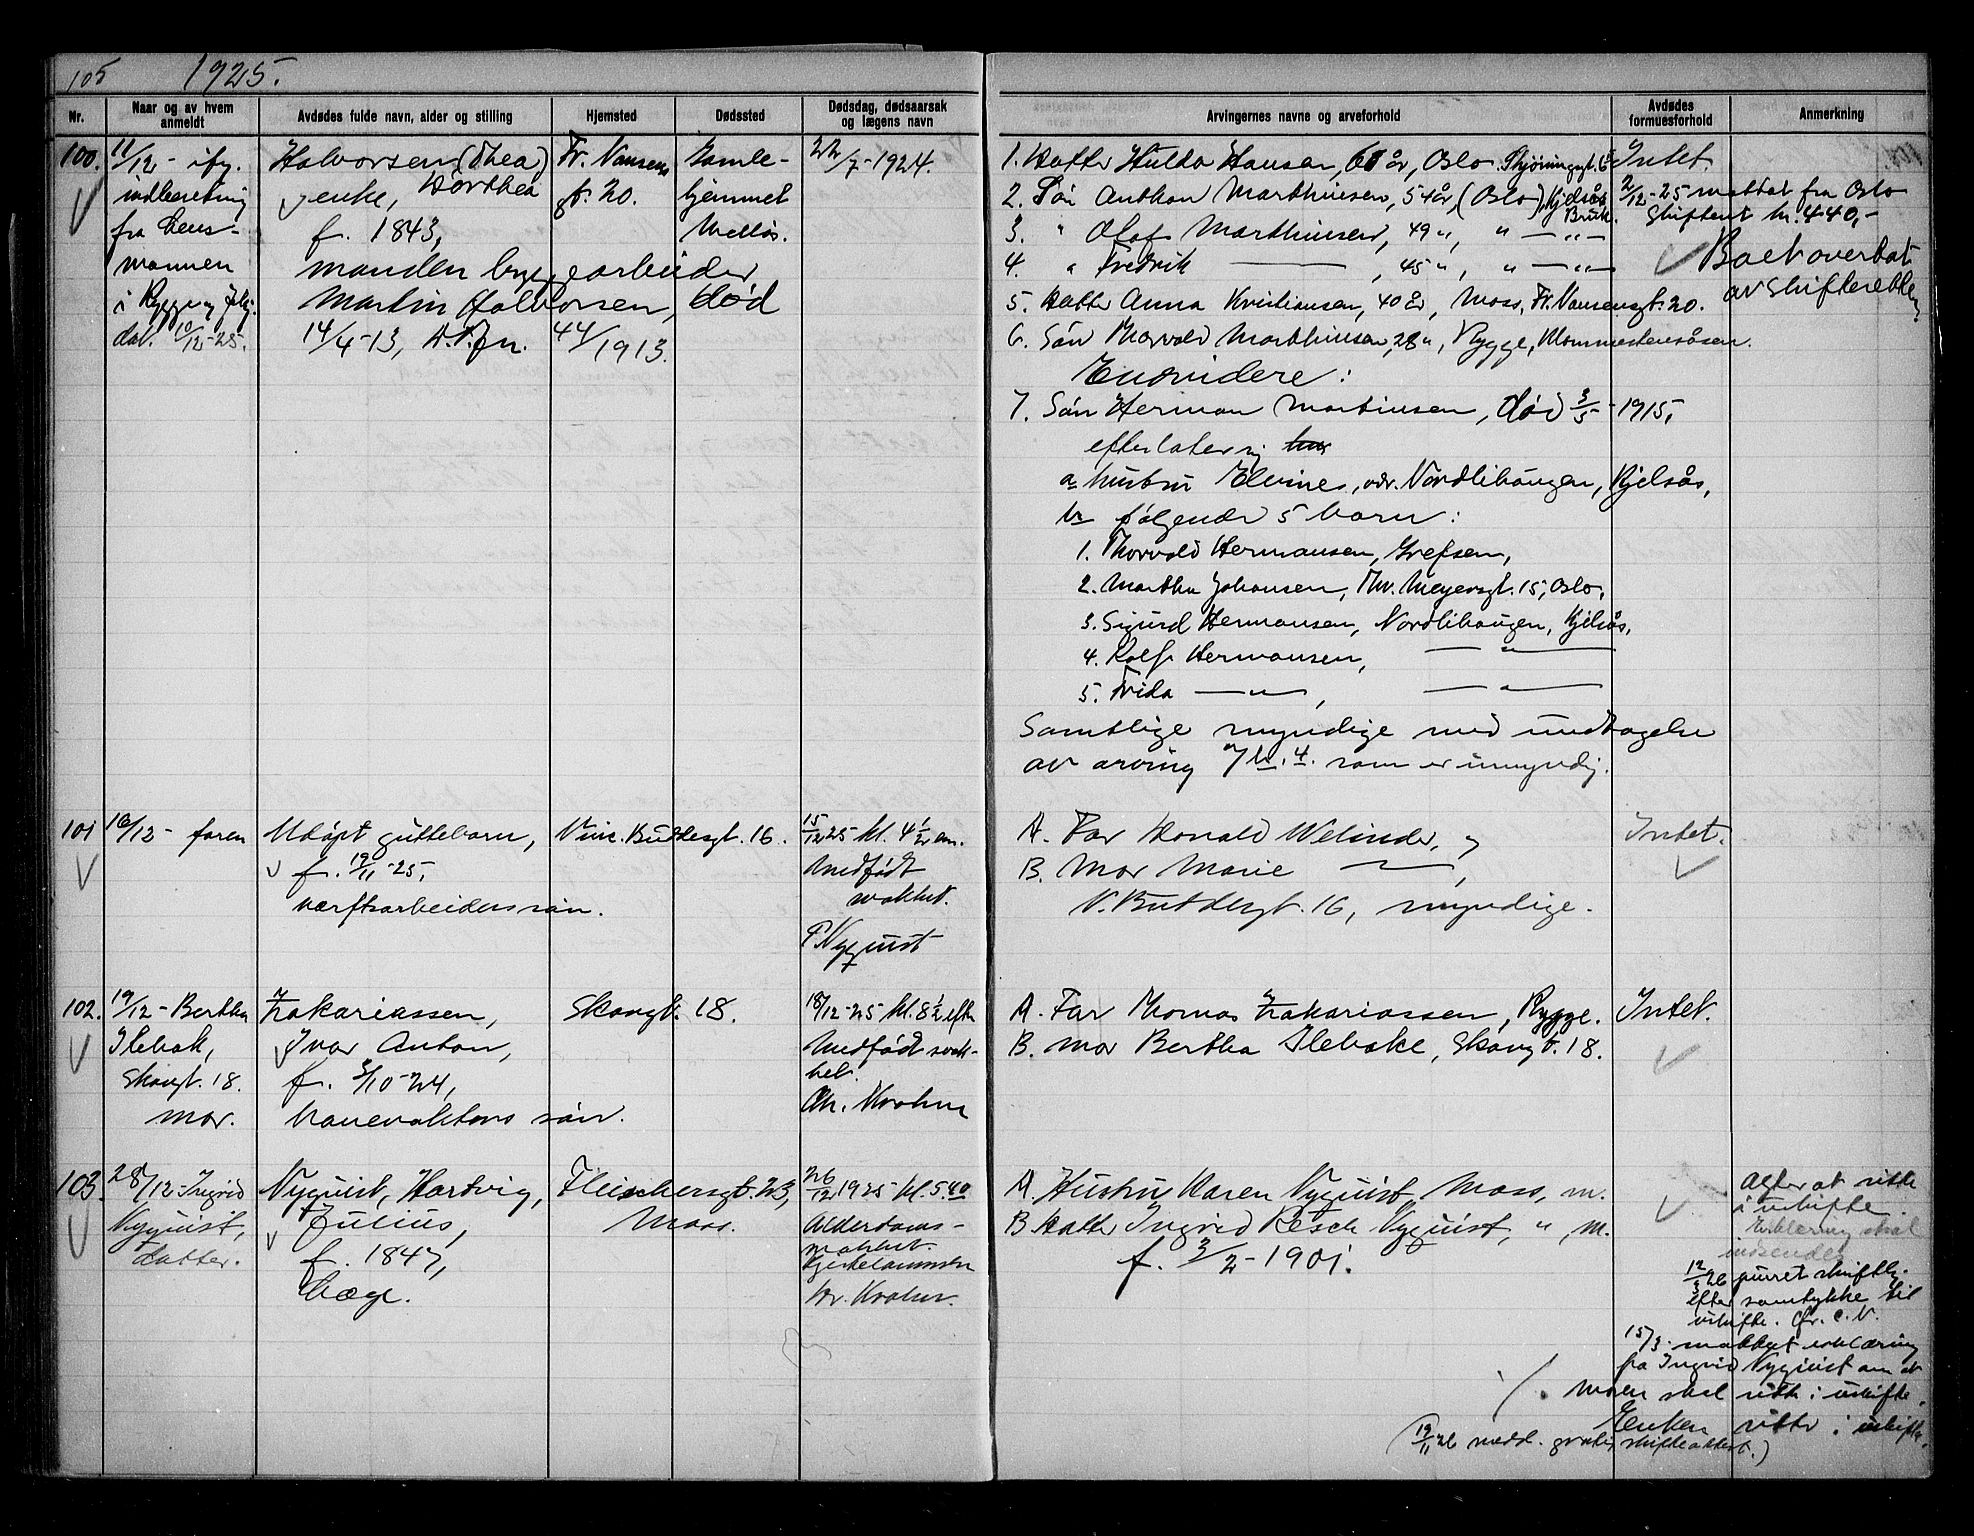 105 1925.
Nr.
Naar og av hvem anmeldt
Avdødes fulde navn, alder og stilling
Hjemsted
Dødssted
Dødsdag, dødsaarsak og lægens navn
Arvingernes navne og arveforhold
Avdødes formuesforhold
Anmerkning
100.
11/12 - ifg.
indberetning
fra lens-
mannen
i Rygge
dat. 10/12-25.
Halvorsen (Thea)
Dorthea
enke,
f. 1843,
manden byggearbeider
Martin Halvorsen, død
14/4-13, 44/1913.
Fr. Nansens
gt. 20.
Gamle-
hjemmet
Melløs.
22/7-1924.
1. Datter Hulda Hansen, 61 år, Oslo
2. Søn Anthon Marthinsen, 54 år, (Oslo), Kjelsås Bruk.
3. " Olaf Marthinsen, 49 ", " — " —
4. " Fredrik —, 45 ", " — " —
5. Datter Anna Kristiansen, 40 år, Moss, Fr. Nansensgt. 20.
6. Søn Thorvald Marthinsen, 28 ", Rygge,
Endvidere:
7. Søn Herman Martinsen, død 3/5-1915,
efterlater sig
a hustru Elvine, adr. Nordlihaugen, Kjelsås,
b følgende 5 barn:
1. Thorvald Hermansen, Grefsen,
2. Martha Johansen, Thv. Meyersgt. 15, Oslo,
3. Sigurd Hermansen, Nordlihaugen, Kjelsås,
4. Rolf Hermansen, — " —
5. Frida — " —, — " —
Samtlige myndige med undtagelse
av arving 7 b. 4. som er umyndig.
Intet.
2/12-25 mottat fra Oslo
skifteret kr. 440,-
Boet overtat
av skifteretten
101
16/12 - faren
Udøpt guttebarn,
f. 19/11-25,
verftsarbeiders søn.
Vinc. Buddesgt. 16.
15/12 25 kl. 4 1/2 em.
Medfødt
svakhet.
Nyquist
A. Far Harald Welinder,
B. Mor Marie — ,
V. Buddesgt. 16, myndige.
Intet.
102.
19/12 - Bertha
Ilebak,
Skovgt. 18.
mor.
Zakariassen,
Ivar Anton,
f. 3/10-24,
banevaktors søn.
Skovgt. 18.
18/12-25 kl. 8 1/2 efm
Medfødt svak-
het.
Chr. Krohn
A. Far Thomas Zakariassen, Rygge.
B. Mor Bertha Ilebakke, Skovgt. 18.
Intet.
103.
28/12-Ingrid
Nyquist,
datter.
Nyquist, Hartvig,
Julius,
f. 1847,
læge.
Fleischersgt. 23,
Moss.
26/12 1925 kl. 5.40
Alderdoms-
svakhet.
Krohn.
A. Hustru Karen Nyquist, Moss, m.
B. Datter Ingrid Resch Nyquist, " m.
f. 3/2-1901.
Agter at sitte
i uskifte.
Erklæring skal
indsendes
12/3 26 purret skiftb.
efter samtykke til
uskifte. cfr. C. V.
15/3. mottat erklæring
fra Ingrid Nyquist om at
moren skal sitte i uskifte.
Enken sitter i uskifte.
(19/11 26 medd. gratis skifteattest.)